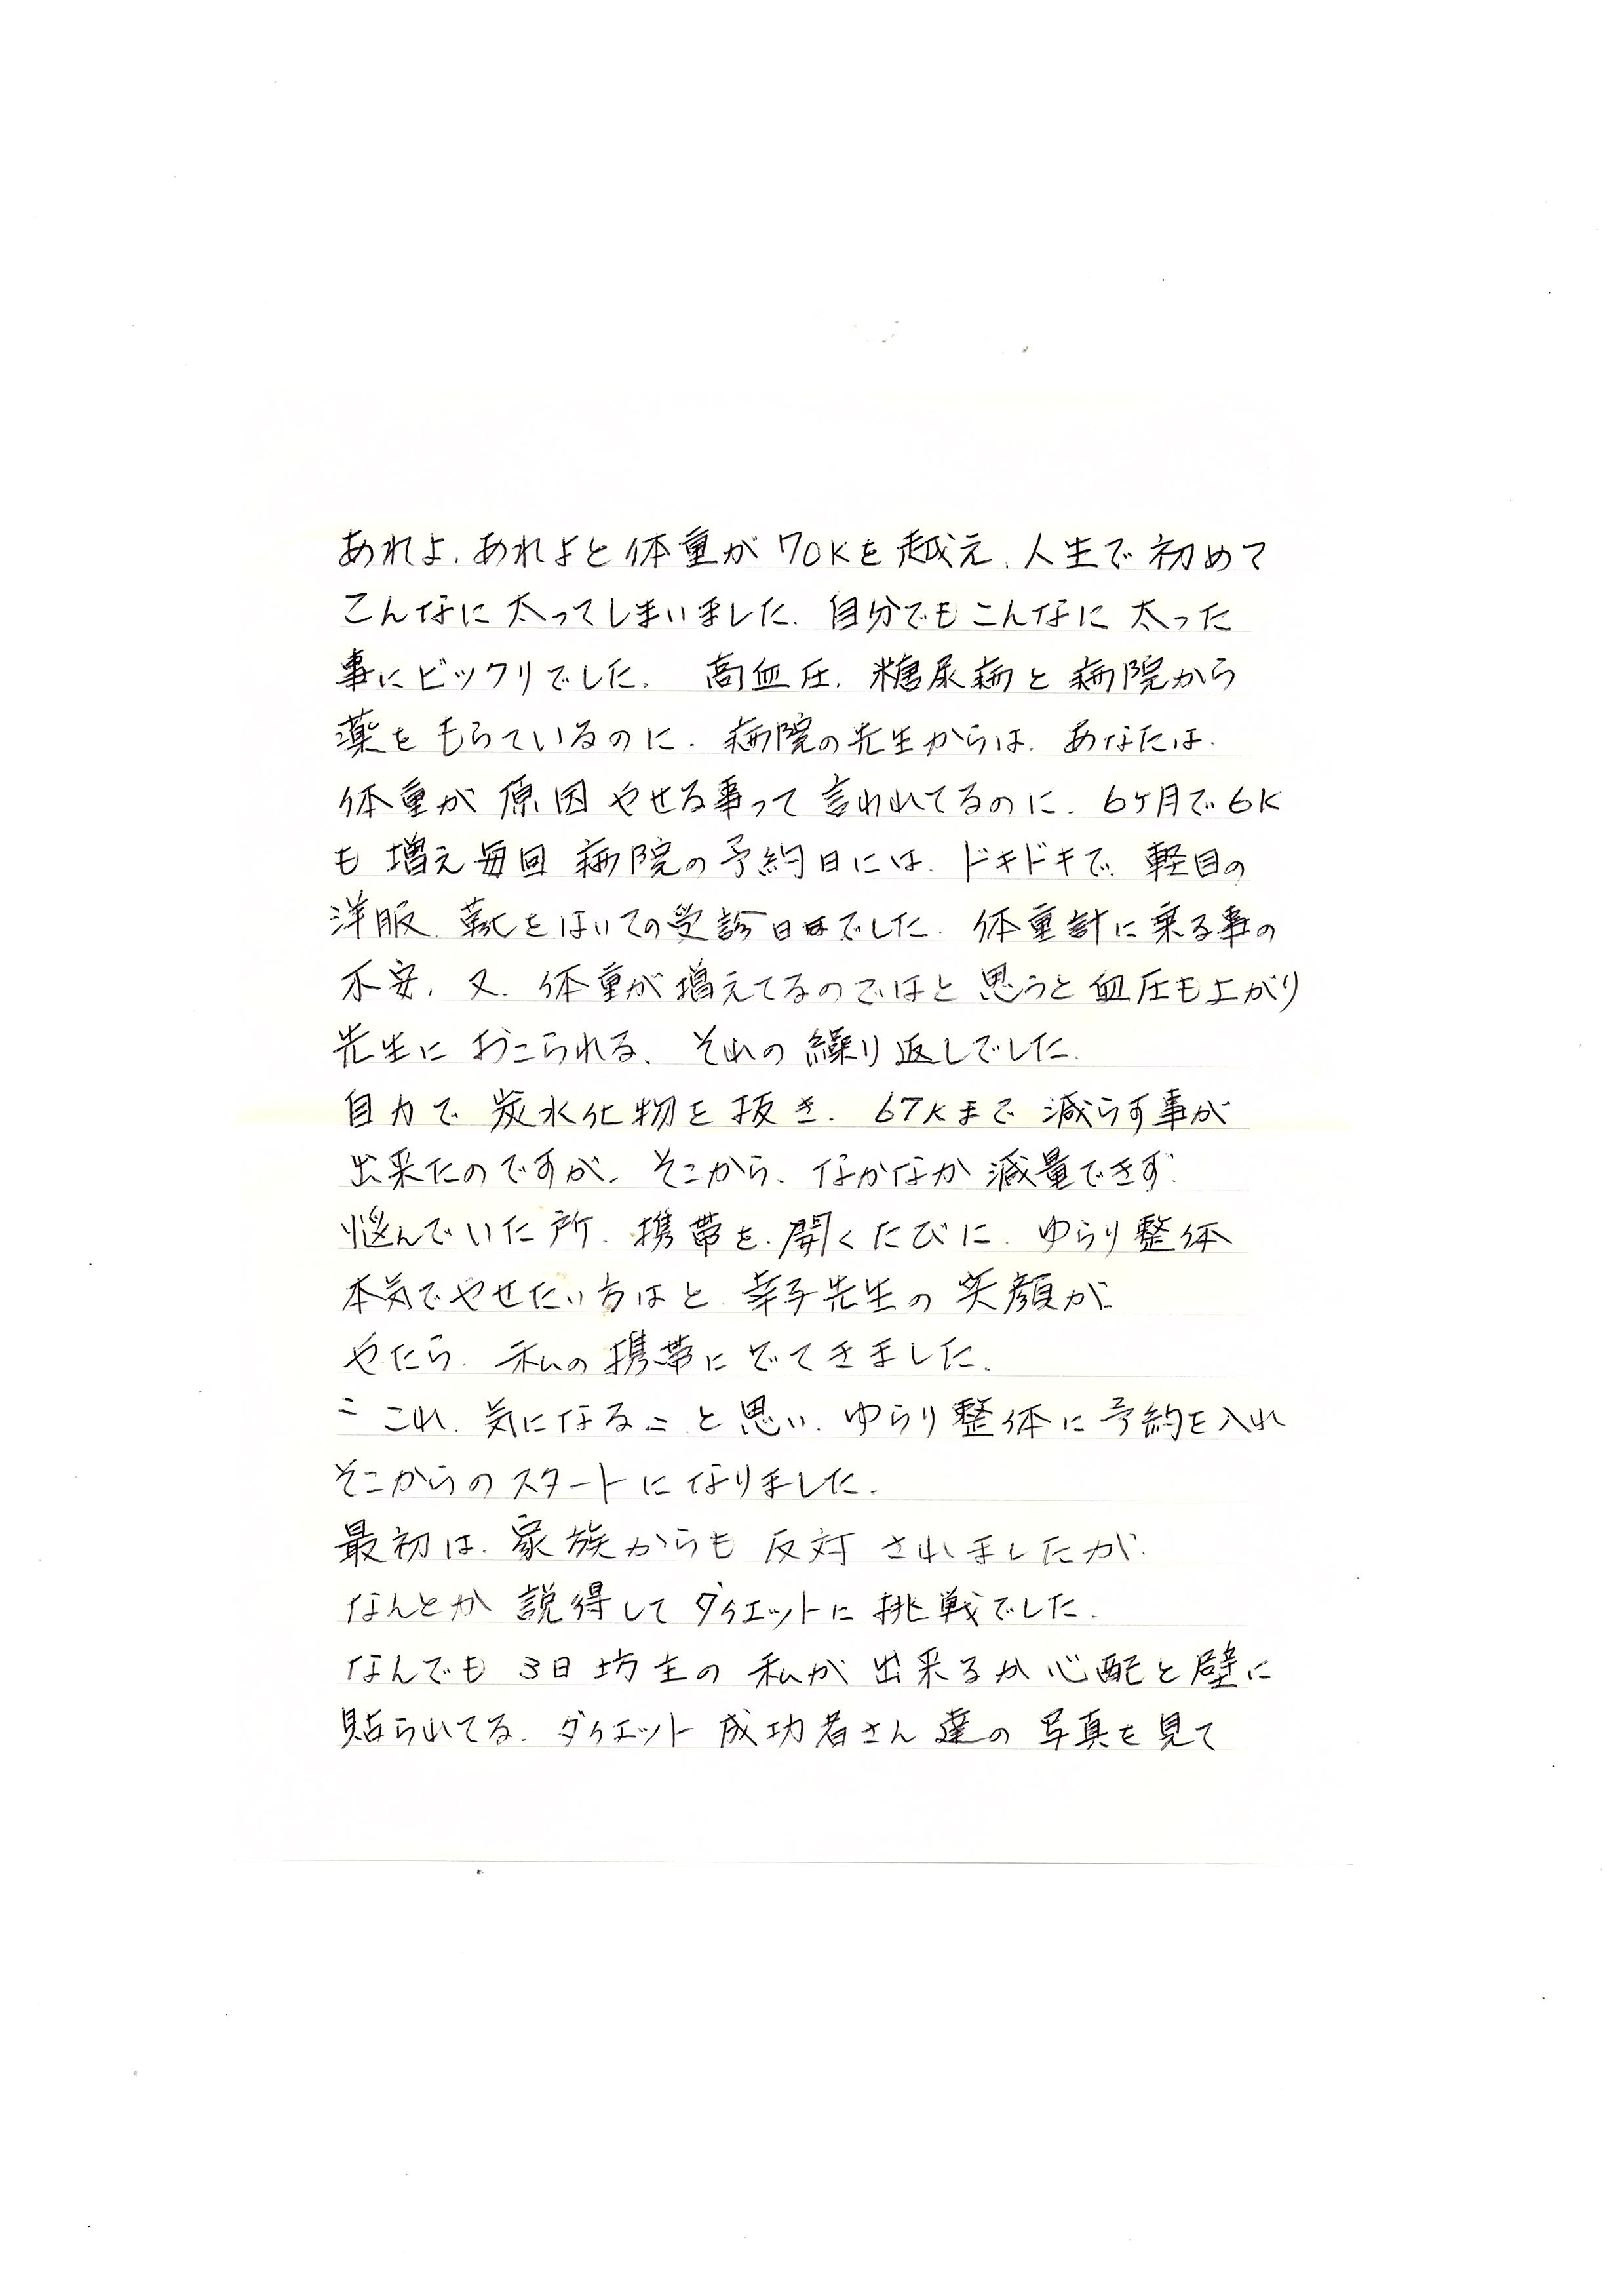 あれよ、あれよと体重が70Kを越え、人生で初めて
こんなに太ってしまいました。自分でもこんなに太った
事にビックリでした。高血圧、糖尿病と病院から
薬をもらっているのに、病院の先生からは、あなたは、
体重が原因やせる事って言われてるのに、6ヶ月で6K
も増え毎回病院の予約日には、ドキドキで、軽目の
洋服、靴をはいての受診日でした。体重計に乗る事の
不安、又、体重が増えてるのではと思うと血圧も上がり
先生におこられる、それの繰り返しでした。
自力で炭水化物を抜き、67Kまで減らす事が
出来たのですが、そこから、なかなか減量できず、
悩んでいた所、携帯を、開くたびに、ゆらり整体
本気でやせたい方はと、幸子先生の笑顔が、
やたら、私の携帯にでてきました。
〝これ、気になる〟と思い、ゆらり整体に予約を入れ
そこからのスタートになりました。
最初は、家族からも反対されましたが、
なんとか説得してダイエットに挑戦でした。
なんでも3日坊主の私が出来るか心配と壁に
貼られてる、ダイエット成功者さん達の写真を見て